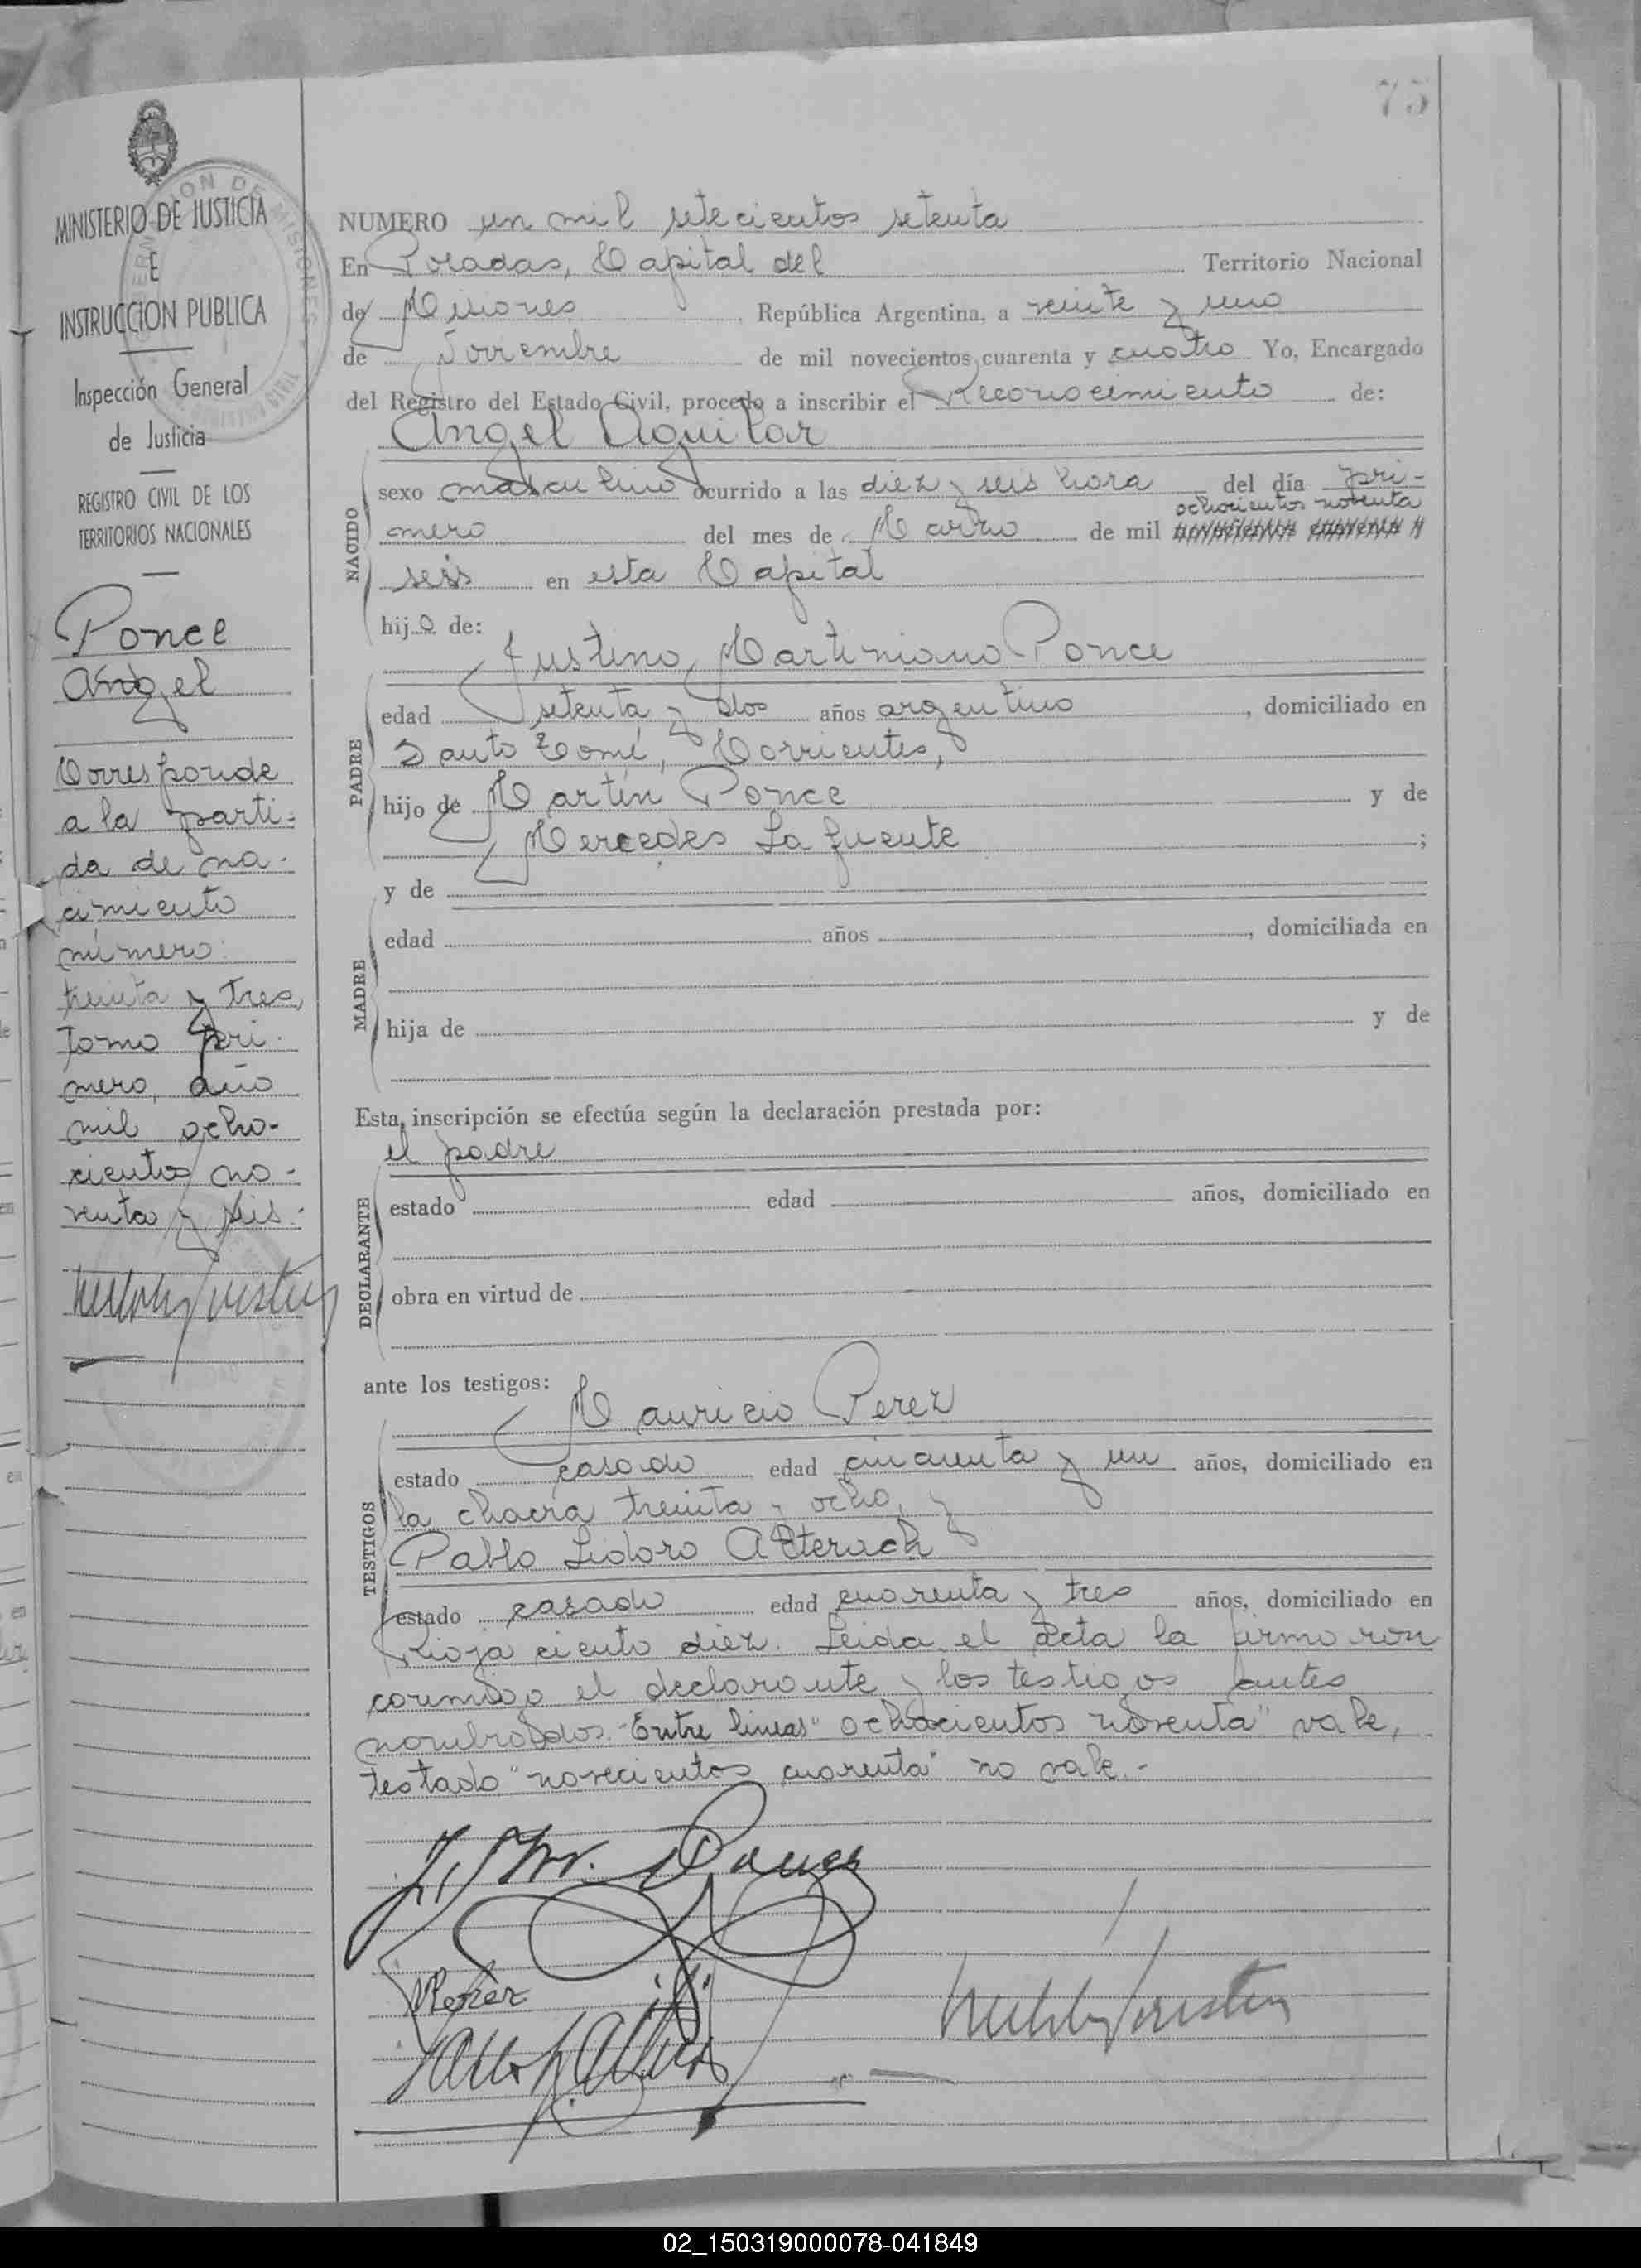 75
MINISTERIO DE JUSTICIA
E
INSTRUCCION PUBLICA
Inspección General
de Justicia
REGISTRO CIVIL DE LOS
TERRITORIOS NACIONALES
Ponce
Angel
Corresponde
a la parti-
da de na-
cimiento
número:
treinta y tres,
Tomo pri-
mero, año
mil ocho-
cientos no-
venta y seis.-
NUMERO un mil setecientos setenta
En Posadas, Capital del Territorio Nacional
de Misiones, República Argentina, a veinte y uno
de Noviembre de mil novecientos cuarenta y cuatro Yo, Encargado
del Registro del Estado Civil, procedo a inscribir el Reconocimiento de:
Angel Aguilar
NACIDO
sexo masculino ocurrido a las diez y seis hora del día pri-
ochocientos noventa
mero del mes de Marzo de mil novecientos cuarenta y
seis en esta Capital
hijo de:
Justino Martiniano Ponce
PADRE
edad setenta y dos años argentino, domiciliado en
Santo Tomé, Corrientes,
hijo de Martín Ponce y de
Mercedes La fuente ;
y de
MADRE
edad años , domiciliada en
hija de y de
Esta inscripción se efectúa según la declaración prestada por:
el padre
DECLARANTE
estado edad años, domiciliado en
obra en virtud de
ante los testigos:
Mauricio Perez
TESTIGOS
estado casado edad cincuenta y un años, domiciliado en
la chacra treinta y ocho, y
Pablo Isidoro Alterach
estado casado edad cuarenta y tres años, domiciliado en
Rioja ciento diez. Leida el acta la firmaron
conmigo el declarante y los testigos antes
nombrados.-Entre lineas "ochocientos noventa" vale,
testado "novecientos cuarenta" no vale.-
J. M. Ponce
MPerez
02_150319000078-041849